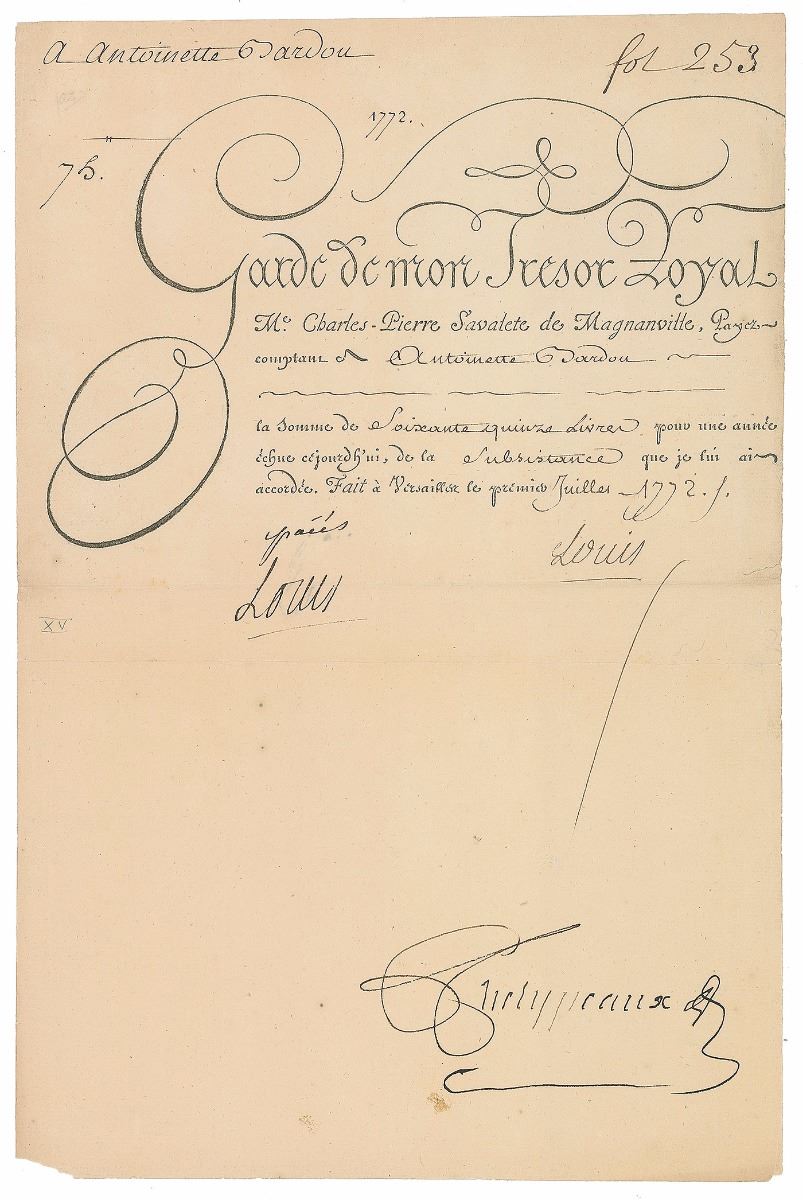 A Antoinette Bardou
fol 253
1772.
75.
Garde de mon Tresor Royal
Me. Charles-Pierre Savalete de Magnanville, Payez
comptant A Antoinette Bardou
la somme de Soixante quinze Livres pour une année
échue cejourd'hui, de la Subsistance que je lui ai
accordée. Fait à Versailles le premier Juillet 1772.
Louis
Louis
XV
Phelypeaux